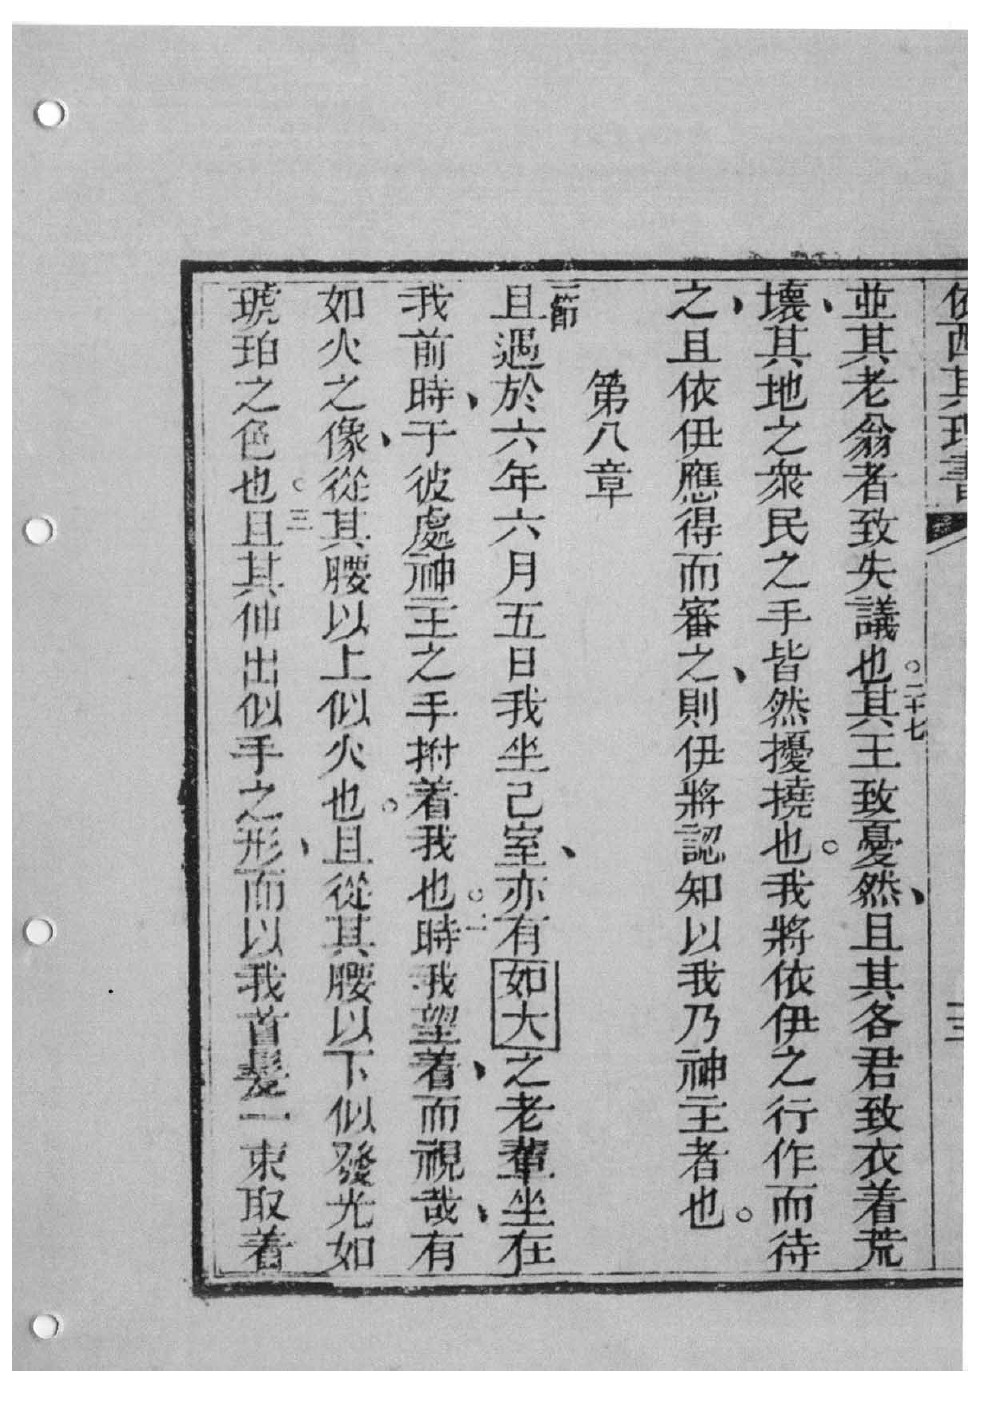 依西其理書 三
並其老翁者致失議也。二十七其王致憂然、且其各君致衣着荒
壞、其地之衆民之手皆然擾撓也。我將依伊之行作而待
之、且依伊應得而審之、則伊將認知以我乃神主者也。
第八章
一節且遇於六年六月五日我坐己室、亦有如大之老輩坐在
我前時、于彼處神主之手拊着我也。二時我望着、而視哉、有
如火之像、從其腰以上似火也。且從其腰以下似發光如
琥珀之色也。三且其伸出似手之形、而以我首髮一束取着